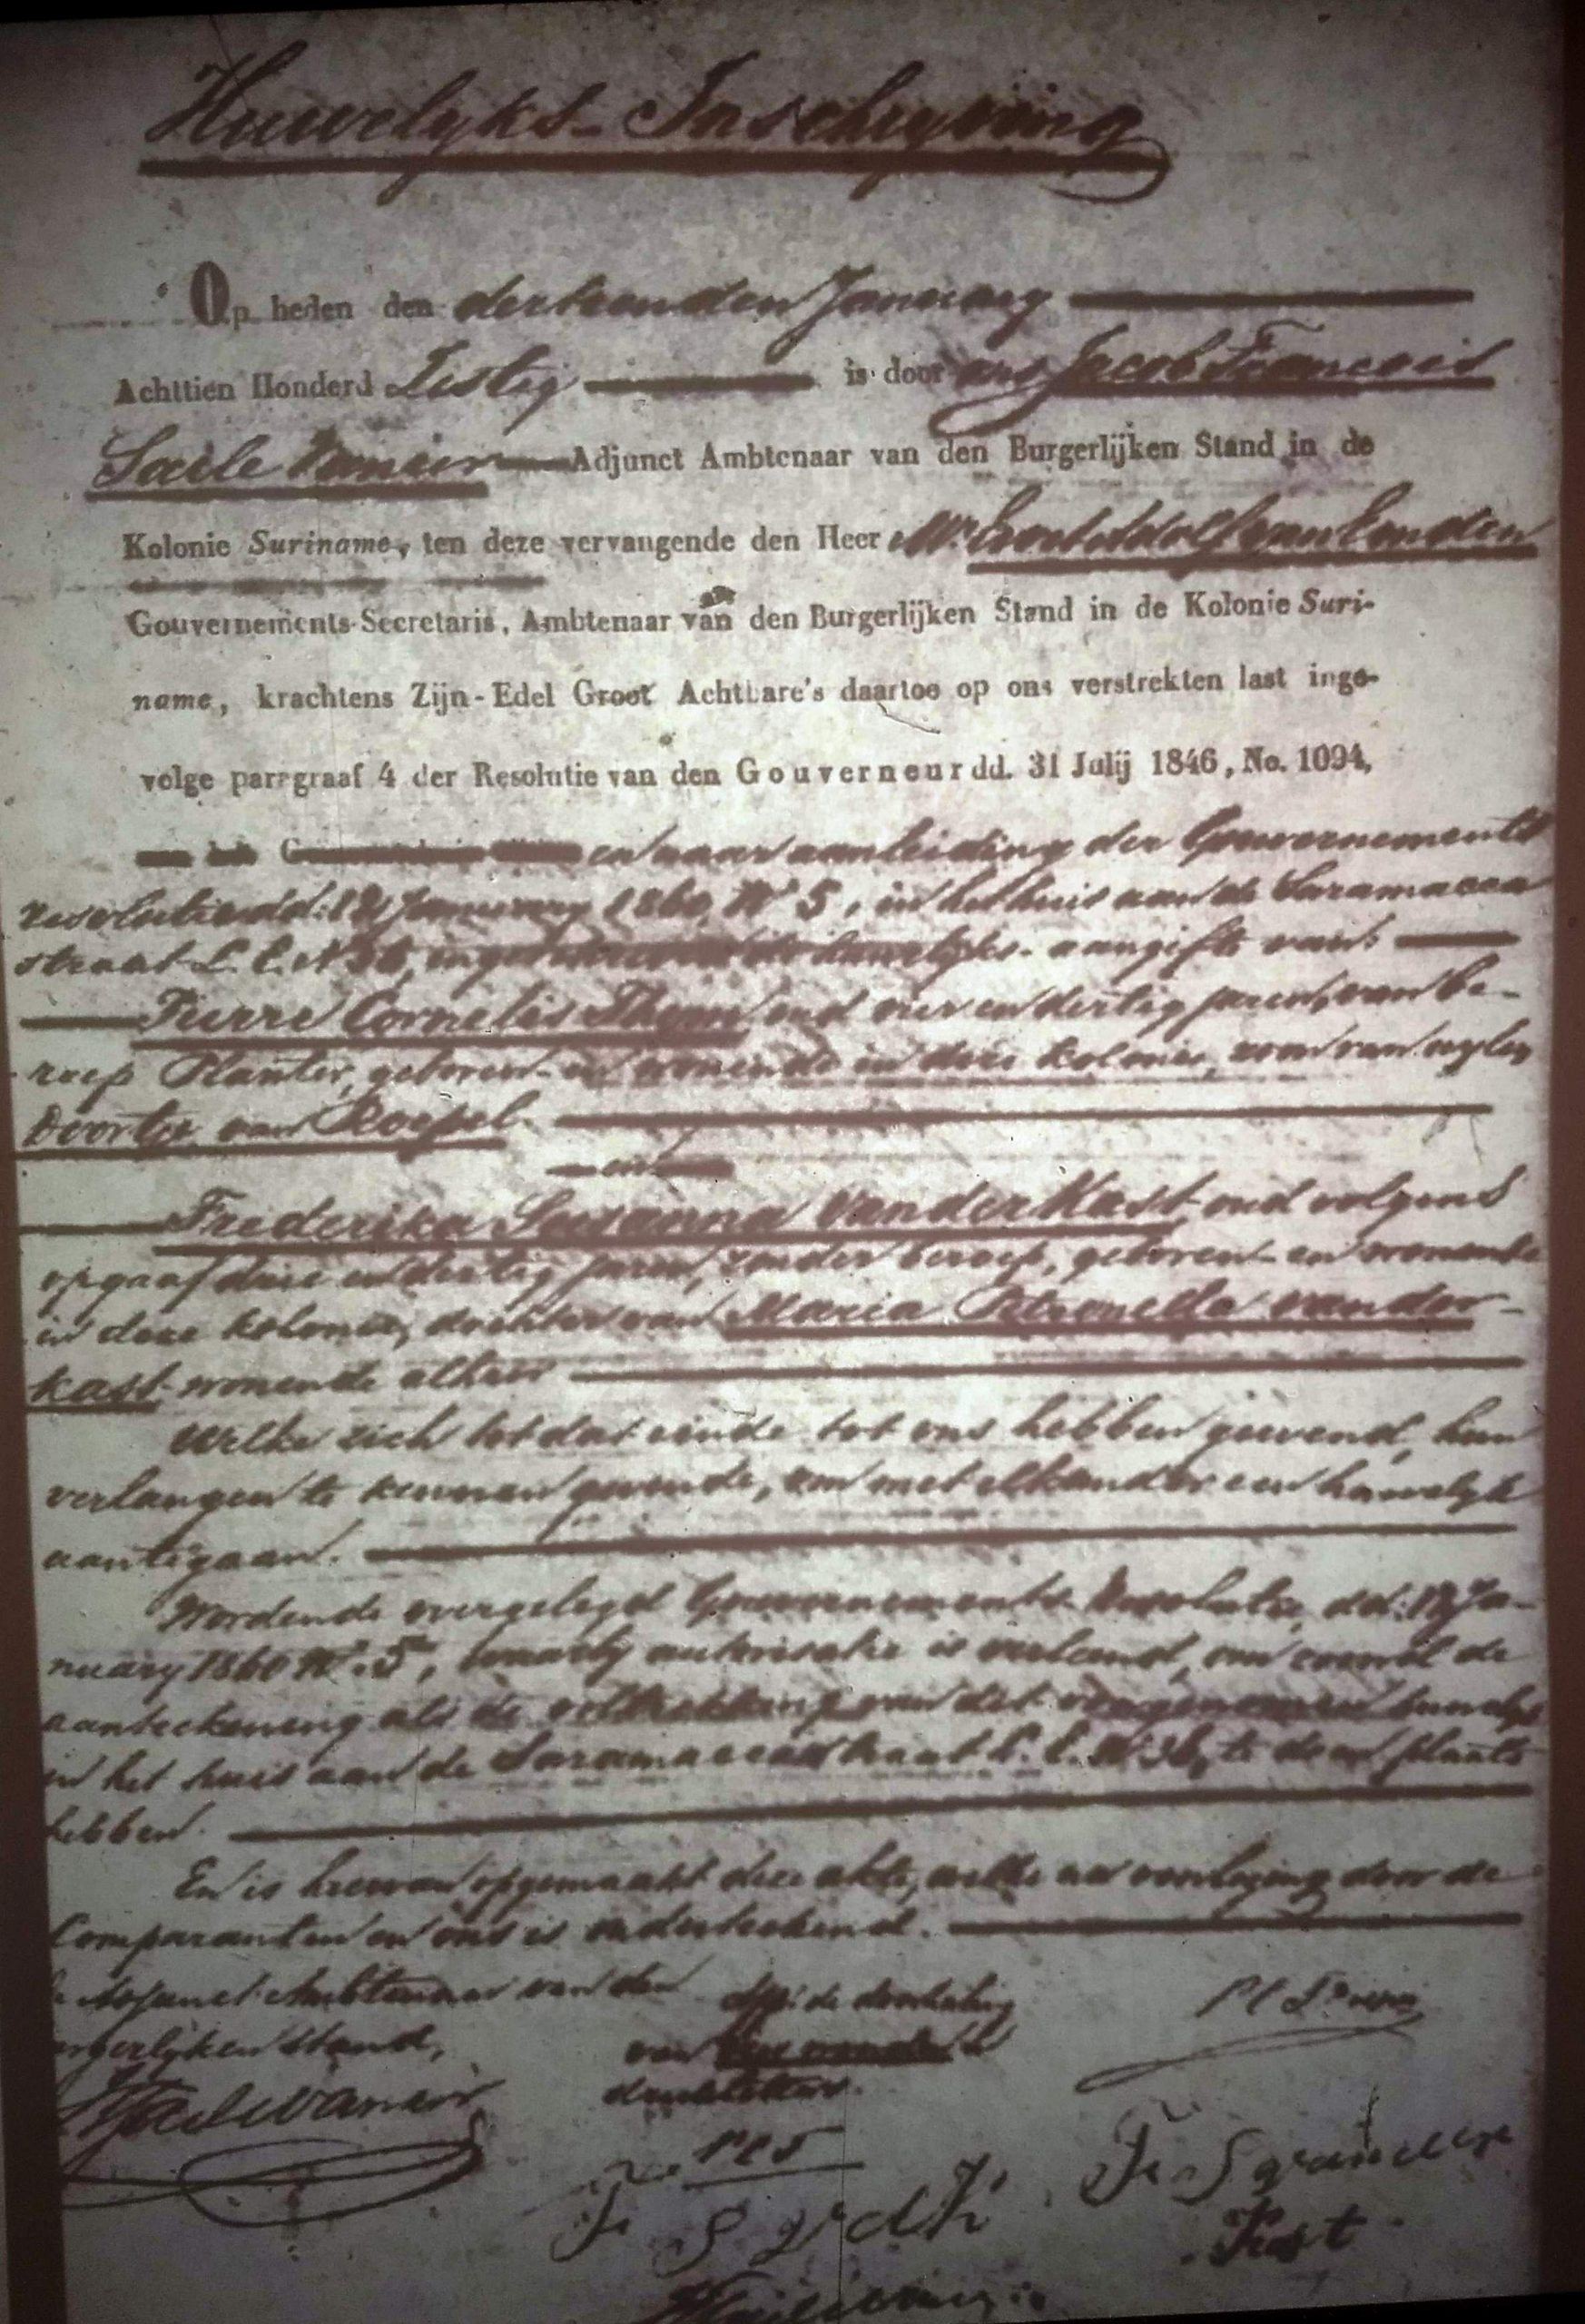 Huwelyks-Inschryving
Op heden den dertienden January
Achttien Honderd Zestig is door ons Jacob Francois
Saile Vanier Adjunct Ambtenaar van den Burgerlijken Stand in de
Kolonie Suriname, ten deze vervangende den Heer Mr. van Emden
Gouvernements-Secretaris, Ambtenaar van den Burgerlijken Stand in de Kolonie Suri-
name, krachtens Zijn-Edel Groot Achtbare's daartoe op ons verstrekten last inge-
volge parrgraaf 4 der Resolutie van den Gouverneur dd. 31 Julij 1846, No. 1094,
en naar aanleiding der Gouvernements
resolutie dd: 12 January 1860 No 5, in het huis aan de Saramacca
straat L. E. No 36, de huwelyks-aangifte van:
Pierre Cornelis oud vier en dertig jaren, van be-
roep Planter, geboren en wonende in deze kolonie, zoon van wylen
Doortje van Roepel.
en
Frederika Susanna van der Kast, oud volgens
opgaaf drie en dertig jaren, zonder beroep, geboren en wonende
in deze kolonie, dochter van Maria Petronella van der
Kast, wonende alhier
Welke zich tot dat einde tot ons hebben gewend, hun
verlangen te kennen gevende, om met elkander een huwelyk
aantegaan.
Wordende overgelegd Gouvernements Resolutie, dd: 12 Ja-
nuary 1860 No. 5, waarby autorisatie is verleend, om zoowel de
aanteekening als de voltrekking van dit voorgenomen huwelyk
in het huis aan de Saramaccastraat L. E. No 36, te doen plaats
hebben.
En is hiervan opgemaakt deze akte, welke na voorlezing door de
Comparanten en ons is onderteekend.
Adjunct Ambtenaar van den de doorhaling
Burgerlijken Stand, van
P C
F S v d K F S van der
Kast